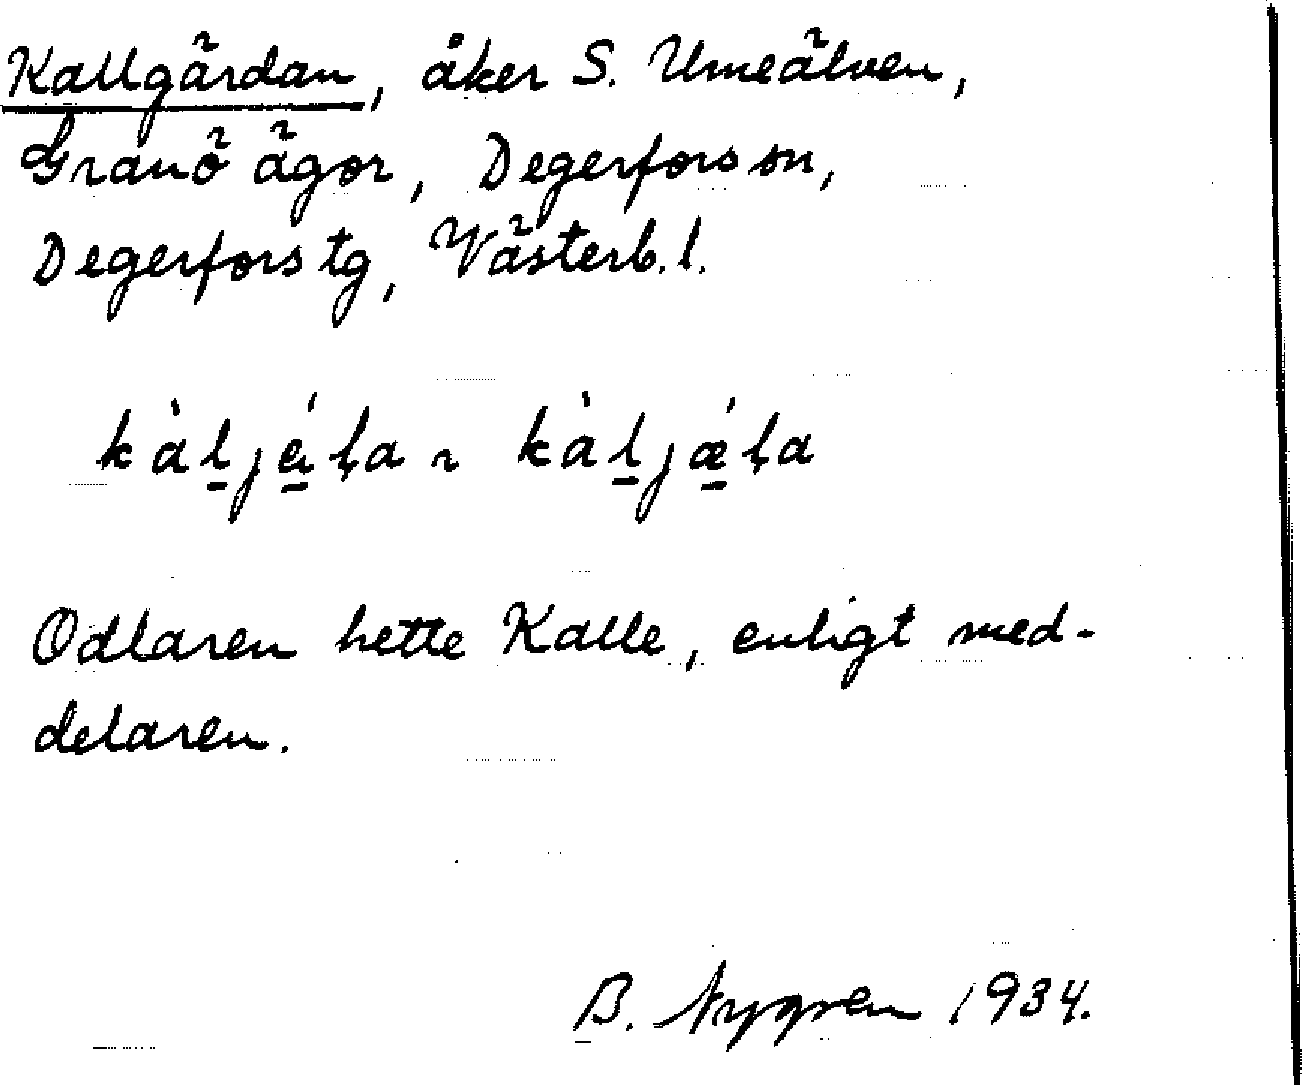 Kallgärdan, åker S. Umeälven,
Granö ägor, Degerfors sn,
Degerfors tg, Västerb. l.
kàl̠jé̠ḷa ~ kàl̠jǽ̠ḷa
Odlaren hette Kalle, enligt med-
delaren.
B. Nygren 1934.